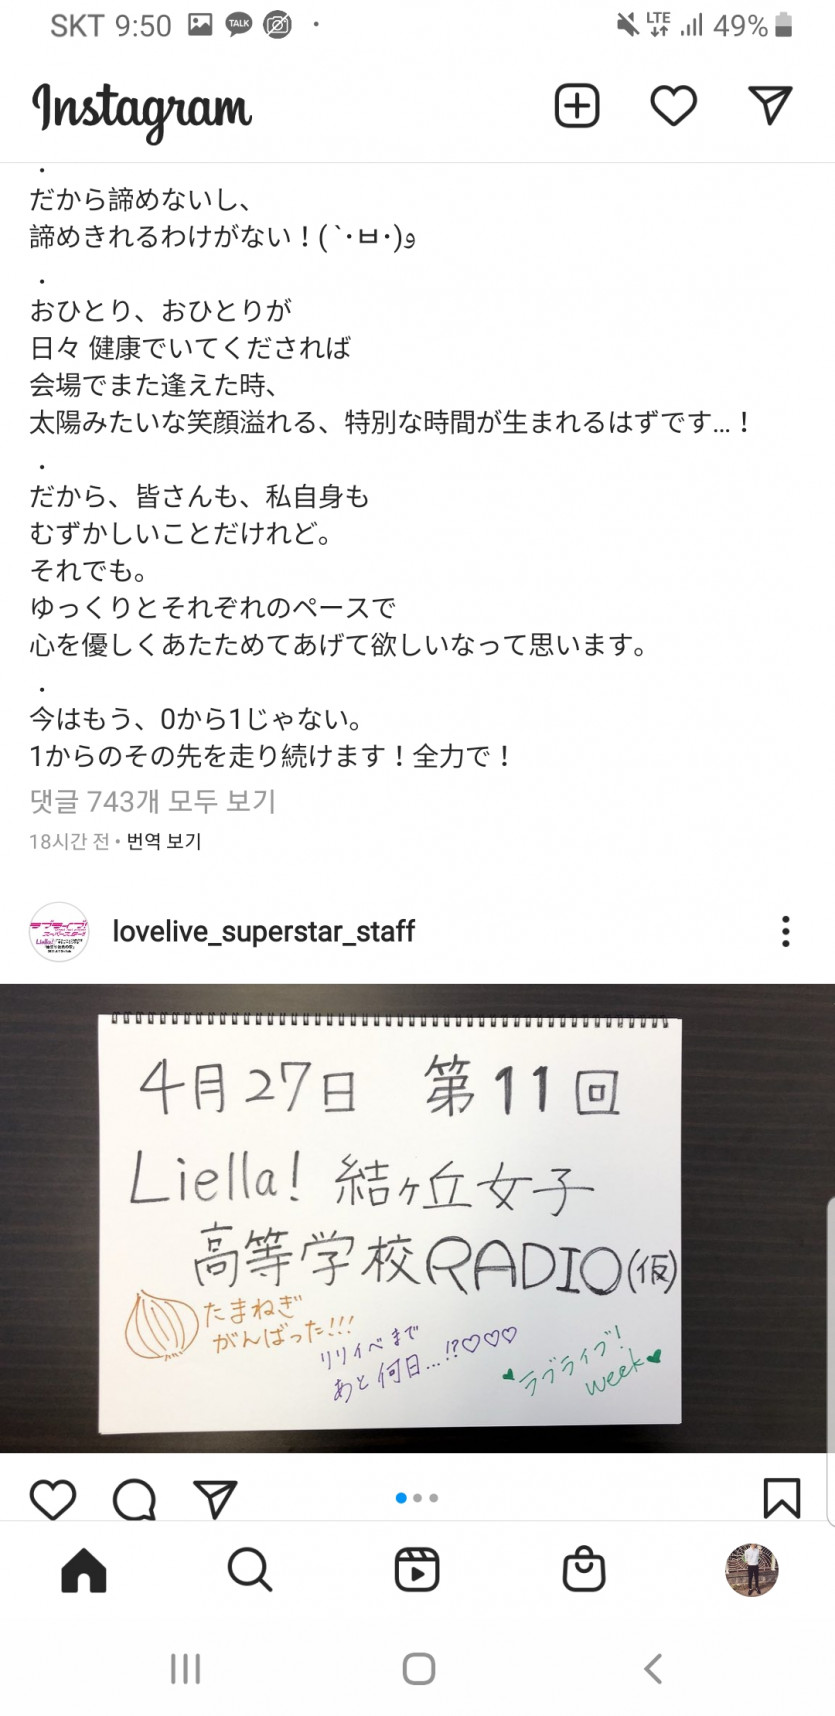 SKT 9:50 TALK LTE 49%
Instagram
.
だから諦めないし、
諦めきれるわけがない！( `･ㅂ･)و
.
おひとり、おひとりが
日々 健康でいてくだされば
会場でまた逢えた時、
太陽みたいな笑顔溢れる、特別な時間が生まれるはずです…！
.
だから、皆さんも、私自身も
むずかしいことだけれど。
それでも。
ゆっくりとそれぞれのペースで
心を優しくあたためてあげて欲しいなって思います。
.
今はもう、0から1じゃない。
1からのその先を走り続けます！全力で！
댓글 743개 모두 보기
18시간 전 • 번역 보기
lovelive_superstar_staff
4月27日 第11回
Liella! 結ヶ丘女子
高等学校RADIO(仮)
たまねぎ
がんばった!!!
リリイベまで
あと何日...!?♡♡♡
♥ラブライブ!
week♥